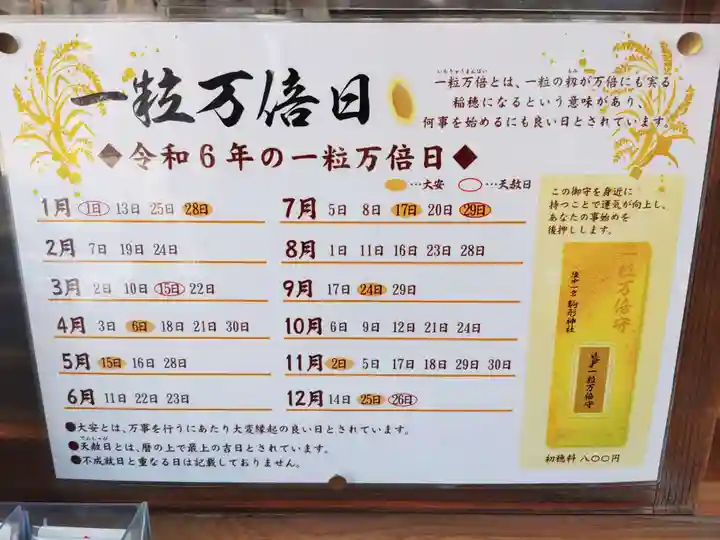 一粒万倍日
いちりゅうまんばい
もみ
一粒万倍とは、一粒の籾が万倍にも実る
稲穂になるという意味があり、
何事を始めるにも良い日とされています。
◆令和6年の一粒万倍日◆
…大安 …天赦日
1月 1日 13日 25日 28日
2月 7日 19日 24日
3月 2日 10日 15日 22日
4月 3日 6日 18日 21日 30日
5月 15日 16日 28日
6月 11日 22日 23日
7月 5日 8日 17日 20日 29日
8月 1日 11日 16日 23日 28日
9月 17日 24日 29日
10月 6日 9日 12日 21日 24日
11月 2日 5日 17日 18日 29日 30日
12月 14日 25日 26日
●大安とは、万事を行うにあたり大変縁起の良い日とされています。
てんしゃび
●天赦日とは、暦の上で最上の吉日とされています。
●不成就日と重なる日は記載しておりません。
この御守を身近に
持つことで運気が向上し、
あなたの事始めを
後押しします。
一粒万倍守
陸中一宮 駒形神社
一粒万倍守
初穂料 八〇〇円